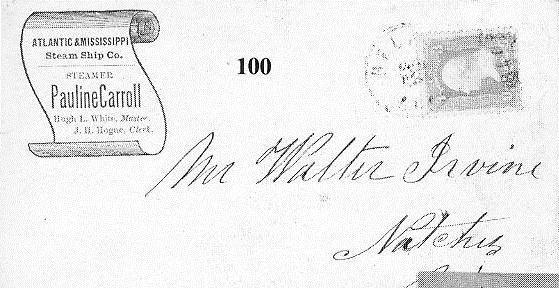 ATLANTIC & MISSISSIPPI
Steam Ship Co.
STEAMER
Pauline Carroll
Hugh L. White, Master.
J. H. Hogue, Clerk.
100
Mr Walter Irvine
Natchez